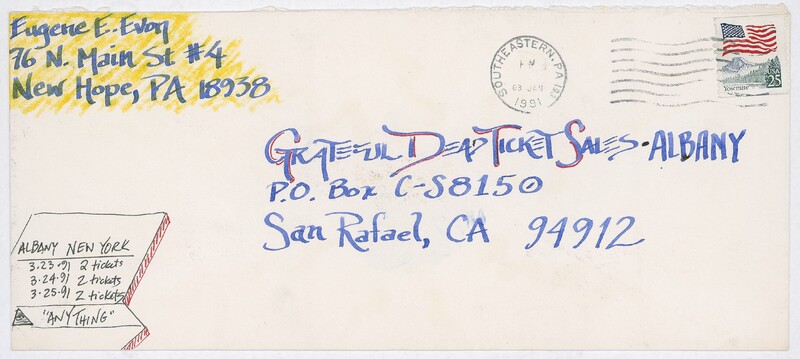 Eugene E. Evon
76 N. Main St #4
New Hope, PA 18938
SOUTHEASTERN, PA
PM
03 JAN
1991
Yosemite
USA
25
GRATEFUL DEAD TICKET SALES · ALBANY
P.O. Box C-S8150
San Rafael, CA 94912
ALBANY NEW YORK
3·23·91 2 tickets
3·24·91 2 tickets
3·25·91 2 tickets
"ANYTHING"